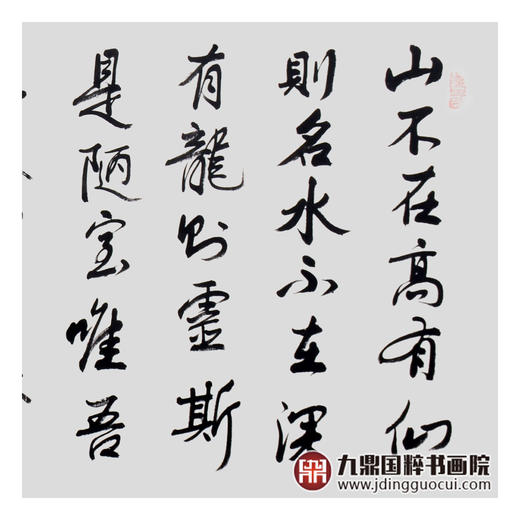 山不在高有仙
則名水不在深
有龍則靈斯
是陋室唯吾
九鼎国粹书画院
www.jdingguocui.com